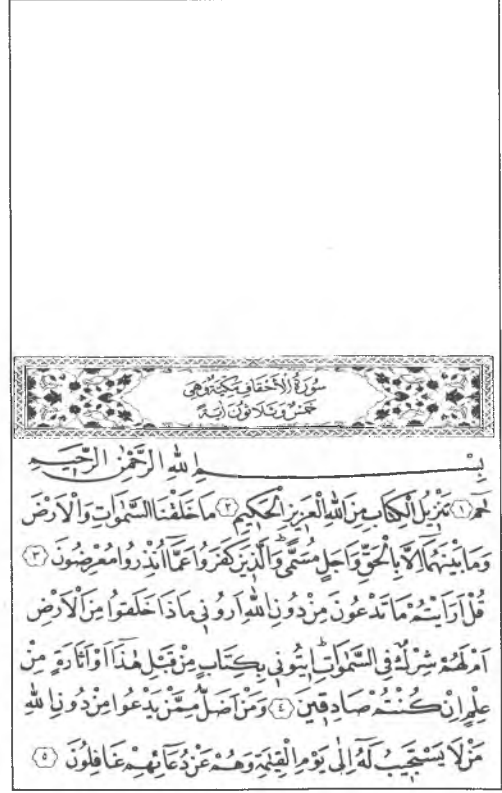 سُورَةُ الْاَحْقَافِ مَكِّيَّةٌ وَهِيَ
خَمْسٌ وَثَلَاثُونَ اٰيَةً
بِسْمِ اللّٰهِ الرَّحْمٰنِ الرَّحِيمِ
حٰمٓ ﴿١﴾ تَنْزِيلُ الْكِتَابِ مِنَ اللّٰهِ الْعَزِيزِ الْحَكِيمِ ﴿٢﴾ مَا خَلَقْنَا السَّمٰوَاتِ وَالْاَرْضَ
وَمَا بَيْنَهُمَٓا اِلَّا بِالْحَقِّ وَاَجَلٍ مُسَمًّىۜ وَالَّذِينَ كَفَرُوا عَمَّٓا اُنْذِرُوا مُعْرِضُونَ ﴿٣﴾
قُلْ اَرَاَيْتُمْ مَا تَدْعُونَ مِنْ دُونِ اللّٰهِ اَرُونِي مَاذَا خَلَقُوا مِنَ الْاَرْضِ
اَمْ لَهُمْ شِرْكٌ فِي السَّمٰوَاتِۜ اِيتُونِي بِكِتَابٍ مِنْ قَبْلِ هٰذَٓا اَوْ اَثَارَةٍ مِنْ
عِلْمٍ اِنْ كُنْتُمْ صَادِقِينَ ﴿٤﴾ وَمَنْ اَضَلُّ مِمَّنْ يَدْعُوا مِنْ دُونِ اللّٰهِ
مَنْ لَا يَسْتَجِيبُ لَهُٓ اِلٰى يَوْمِ الْقِيٰمَةِ وَهُمْ عَنْ دُعَٓائِهِمْ غَافِلُونَ ﴿٥﴾